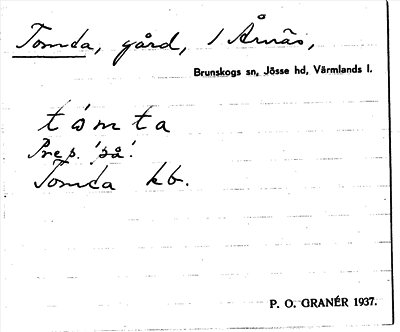 Tomta, gård, i Årnäs,
Brunskogs sn, Jösse hd, Värmlands l.
tómta
Prep. 'på'.
Tomta kb.
P. O. GRANÉR 1937.